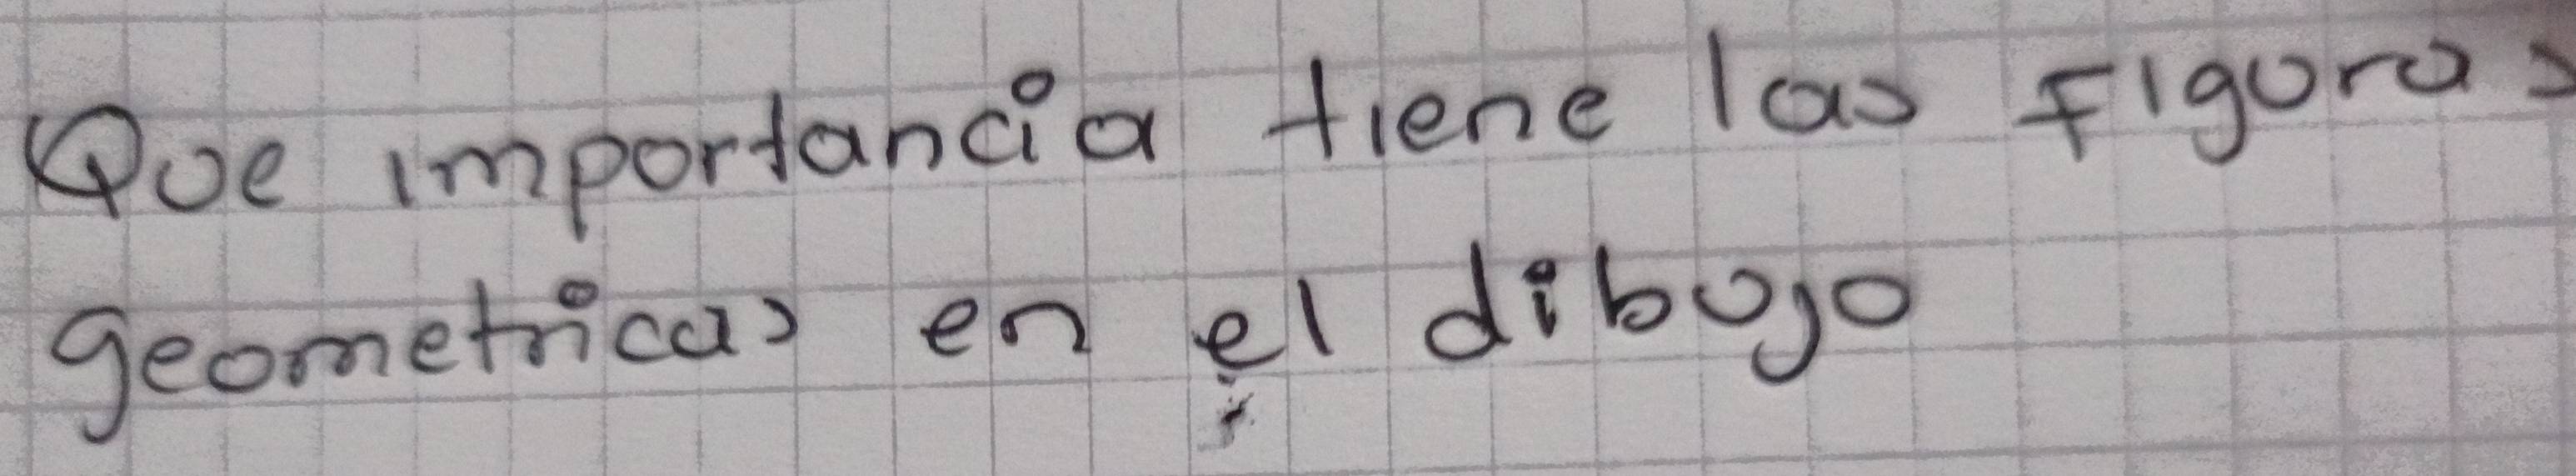 Que importancia tiene las Figuras
geometricas en el dibujo